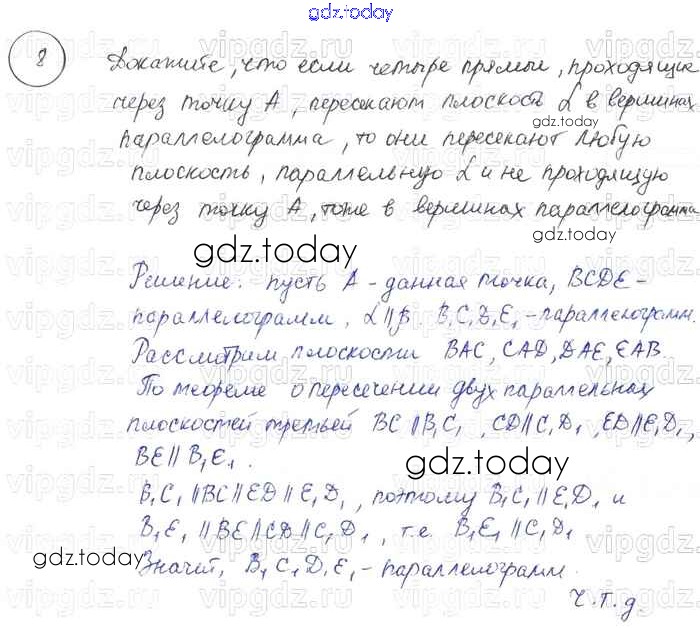 gdz.today
8
Докажите, что если четыре прямые, проходящие
через точку А, пересекают плоскость α в вершинах
параллелограмма, то они пересекают любую
плоскость, параллельную α и не проходящую
через точку А, тоже в вершинах параллелограмма
gdz.today
gdz.today
Решение: пусть А - данная точка, BCDE -
параллелограмм, α || β B₁C₁D₁E₁ - параллелограмм.
Рассмотрим плоскости BAC, CAD, DAE, EAB.
По теореме о пересечении двух параллельных
плоскостей третьей BC || B₁C₁, CD || C₁D₁, ED || E₁D₁,
BE || B₁E₁.
gdz.today
B₁C₁ || BC || ED || E₁D₁, поэтому B₁C₁ || E₁D₁ и
B₁E₁ || BE || CD || C₁D₁, т.е. B₁E₁ || C₁D₁
gdz.today
Значит, B₁C₁D₁E₁ - параллелограмм.
gdz.today
ч.т.д.